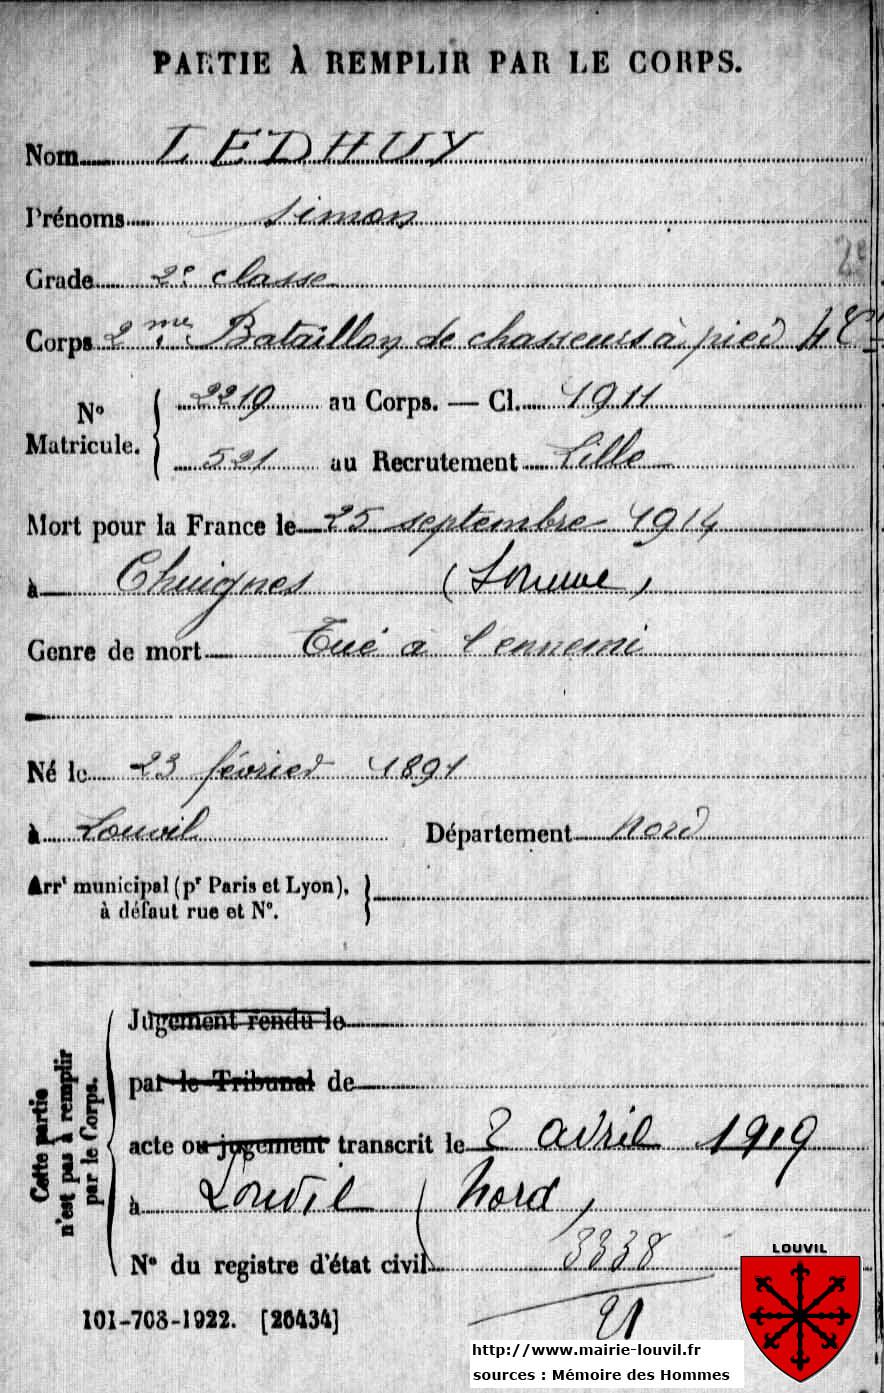 PARTIE À REMPLIR PAR LE CORPS.
Nom LEDHUY
Prénoms Simon
2e
Grade 2e classe
Corps 2me Bataillon de chasseurs à pied 4 Cie
No Matricule. { 2219 au Corps. — Cl. 1911
521 au Recrutement Lille
Mort pour la France le 25 septembre 1914
à Chuignes (Somme)
Genre de mort Tué à l'ennemi
Né le 23 février 1891
à Louvil Département Nord
Arrt municipal (pr Paris et Lyon),
à défaut rue et No.
Cette partie
n'est pas à remplir
par le Corps.
Jugement rendu le
par le Tribunal de
acte ou jugement transcrit le 2 avril 1919
à Louvil (Nord)
No du registre d'état civil 3338
21
101-708-1922. [26434]
LOUVIL
http://www.mairie-louvil.fr
sources : Mémoire des Hommes